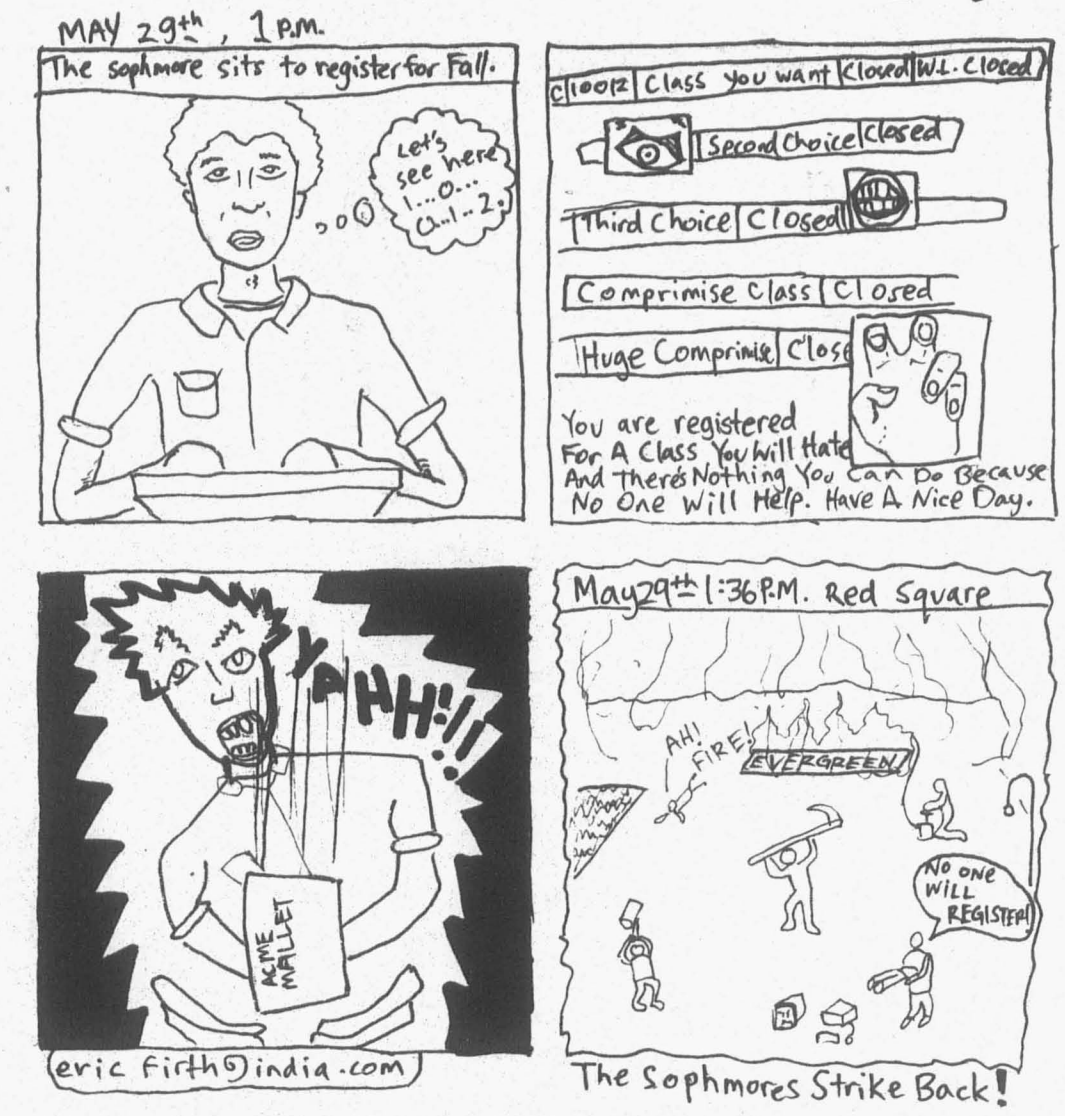 MAY 29th, 1 P.M.
The sophmore sits to register for Fall.
Let's
see here
1...0...
0..1..2.
C|10012 | Class you want | Closed | W.L. Closed
Second Choice | Closed
Third Choice | Closed
Comprimise Class | Closed
Huge Comprimise | Close
You are registered
For A Class You Will Hate
And There's Nothing You Can Do Because
No One Will Help. Have A Nice Day.
YAHHH!!!
ACME
MALLET
eric firth@india.com
May 29th 1:36 P.M. Red Square
AH!
FIRE!
EVERGREEN
NO ONE
WILL
REGISTER!
The Sophmores Strike Back!